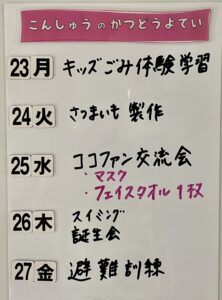 こんしゅう の かつどうよてい
23 月 キッズごみ体験学習
24 火 さつまいも製作
25 水 ココファン交流会
・マスク
・フェイスタオル1枚
26 木 スイミング
誕生会
27 金 避難訓練